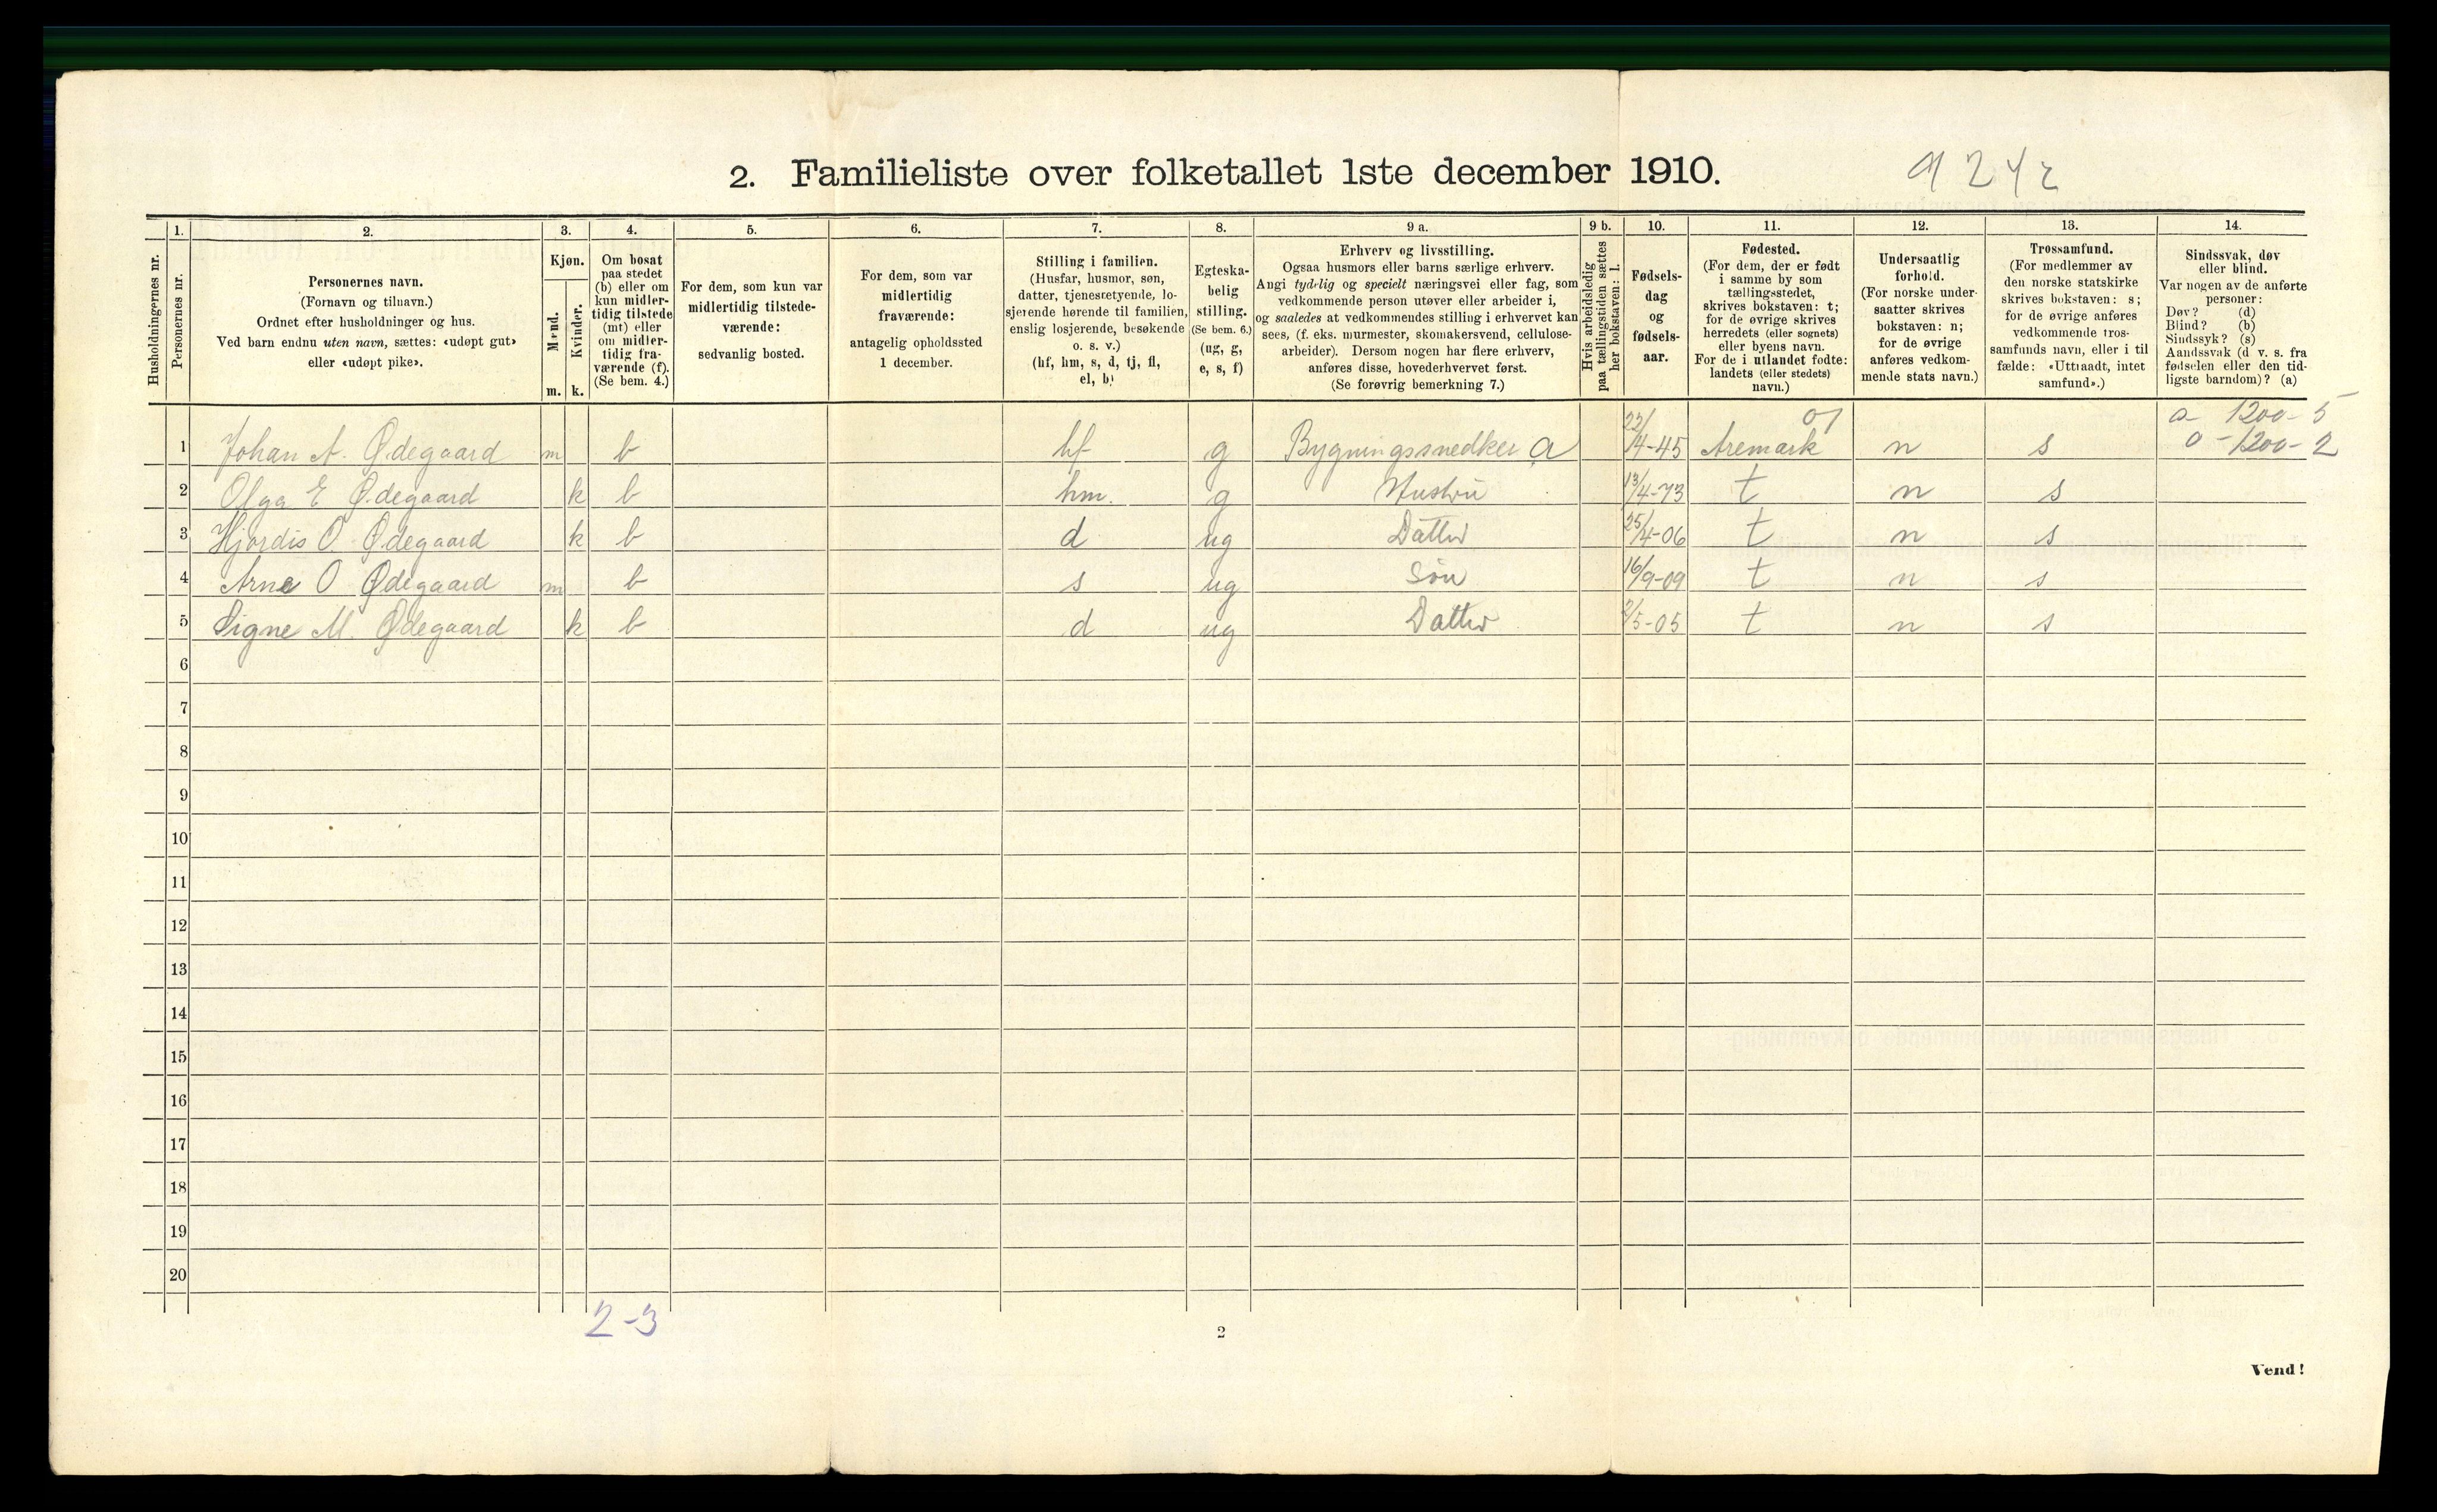 2. Familieliste over folketallet 1ste december 1910.
Husholdningernes nr.
1.
Personernes nr.
2.
Personernes navn.
(Fornavn og tilnavn.)
Ordnet efter husholdninger og hus.
Ved barn endnu uten navn, sættes: «udøpt gut»
eller «udøpt pike».
3.
Kjøn.
Mænd.
Kvinder.
m. k.
4.
Om bosat
paa stedet
(b) eller om
kun midler-
tidig tilstede
(mt) eller
om midler-
tidig fra-
værende (f).
(Se bem. 4.)
5.
For dem, som kun var
midlertidig tilstede-
værende:
sedvanlig bosted.
6.
For dem, som var
midlertidig
fraværende:
antagelig opholdssted
1 december.
7.
Stilling i familien.
(Husfar, husmor, søn,
datter, tjenestetyende, lo-
sjerende hørende til familien,
enslig losjerende, besøkende
o. s. v.)
(hf, hm, s, d, tj, fl,
el, b)
8.
Egteska-
belig
stilling.
(Se bem. 6.)
(ug, g,
e, s, f)
9 a.
Erhverv og livsstilling.
Ogsaa husmors eller barns særlige erhverv.
Angi tydelig og specielt næringsvei eller fag, som
vedkommende person utøver eller arbeider i,
og saaledes at vedkommendes stilling i erhvervet kan
sees, (f. eks. murmester, skomakersvend, cellulose-
arbeider). Dersom nogen har flere erhverv,
anføres disse, hovederhvervet først.
(Se forøvrig bemerkning 7.)
9 b.
Hvis arbeidsledig
paa tællingstiden sættes
her bokstaven: l.
10.
Fødsels-
dag
og
fødsels-
aar.
11.
Fødested.
(For dem, der er født
i samme by som
tællingsstedet,
skrives bokstaven: t;
for de øvrige skrives
herredets (eller sognets)
eller byens navn.
For de i utlandet fødte:
landets (eller stedets)
navn.)
12.
Undersaatlig
forhold.
(For norske under-
saatter skrives
bokstaven: n;
for de øvrige
anføres vedkom-
mende stats navn.)
13.
Trossamfund.
(For medlemmer av
den norske statskirke
skrives bokstaven: s;
for de øvrige anføres
vedkommende tros-
samfunds navn, eller i til
fælde: «Uttraadt, intet
samfund».)
14.
Sindssvak, døv
eller blind.
Var nogen av de anførte
personer:
Døv? (d)
Blind? (b)
Sindssyk? (s)
Aandssvak (d v. s. fra
fødselen eller den tid-
ligste barndom)? (a)
01
a- 1200- 5
0 - 1200 - 2
1 Johan A. Ødegaard m b hf g Bygningssnedker a 22/4-45 Aremark n s
2 Olga E Ødegaard k b hm. g Hustru 13/4-73 t n s
3 Hjordis O. Ødegaard k b d ug Datter 25/4-06 t n s
4 Arne O Ødegaard m b s ug Søn 16/9-09 t n s
5 Signe M. Ødegaard k b d ug Datter 2/5-05 t n s
6
7
8
9
10
11
12
13
14
15
16
17
18
19
20
2-3
2
Vend!